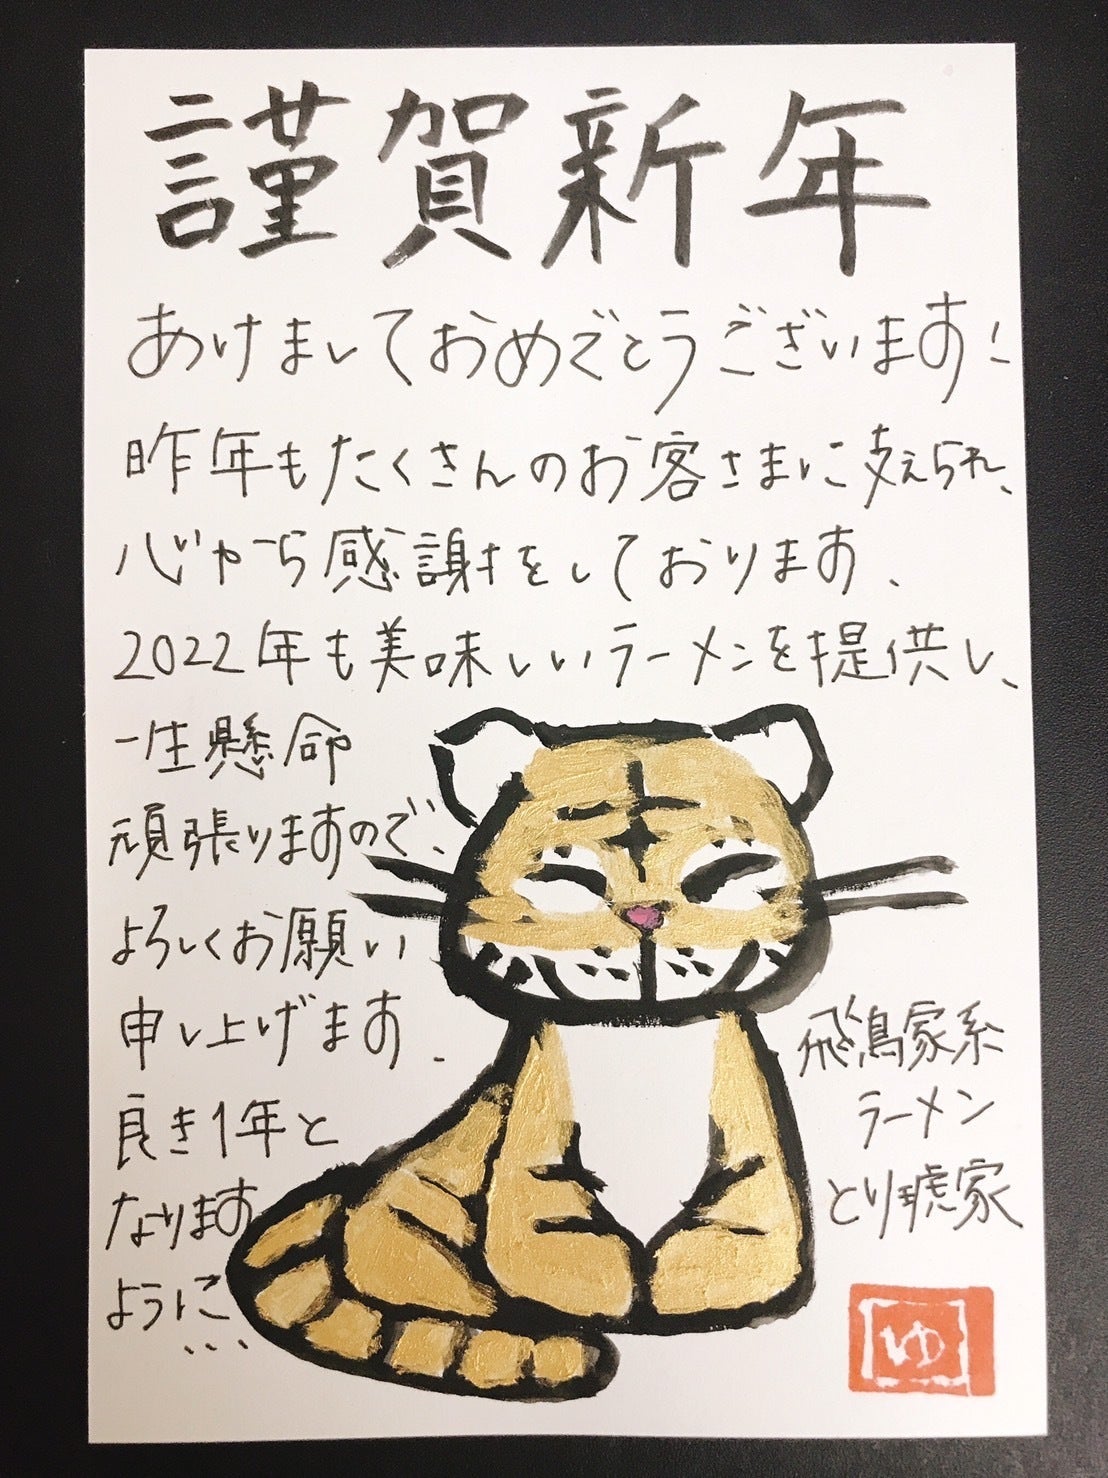 謹賀新年
あけましておめでとうございます！
昨年もたくさんのお客さまに支えられ、
心から感謝をしております、
2022年も美味しいラーメンを提供し、
一生懸命
頑張りますので、
よろしくお願い
申し上げます.
良き1年と
なります
ように...
飛鳥家系
ラーメン
とり琥家
ゆ